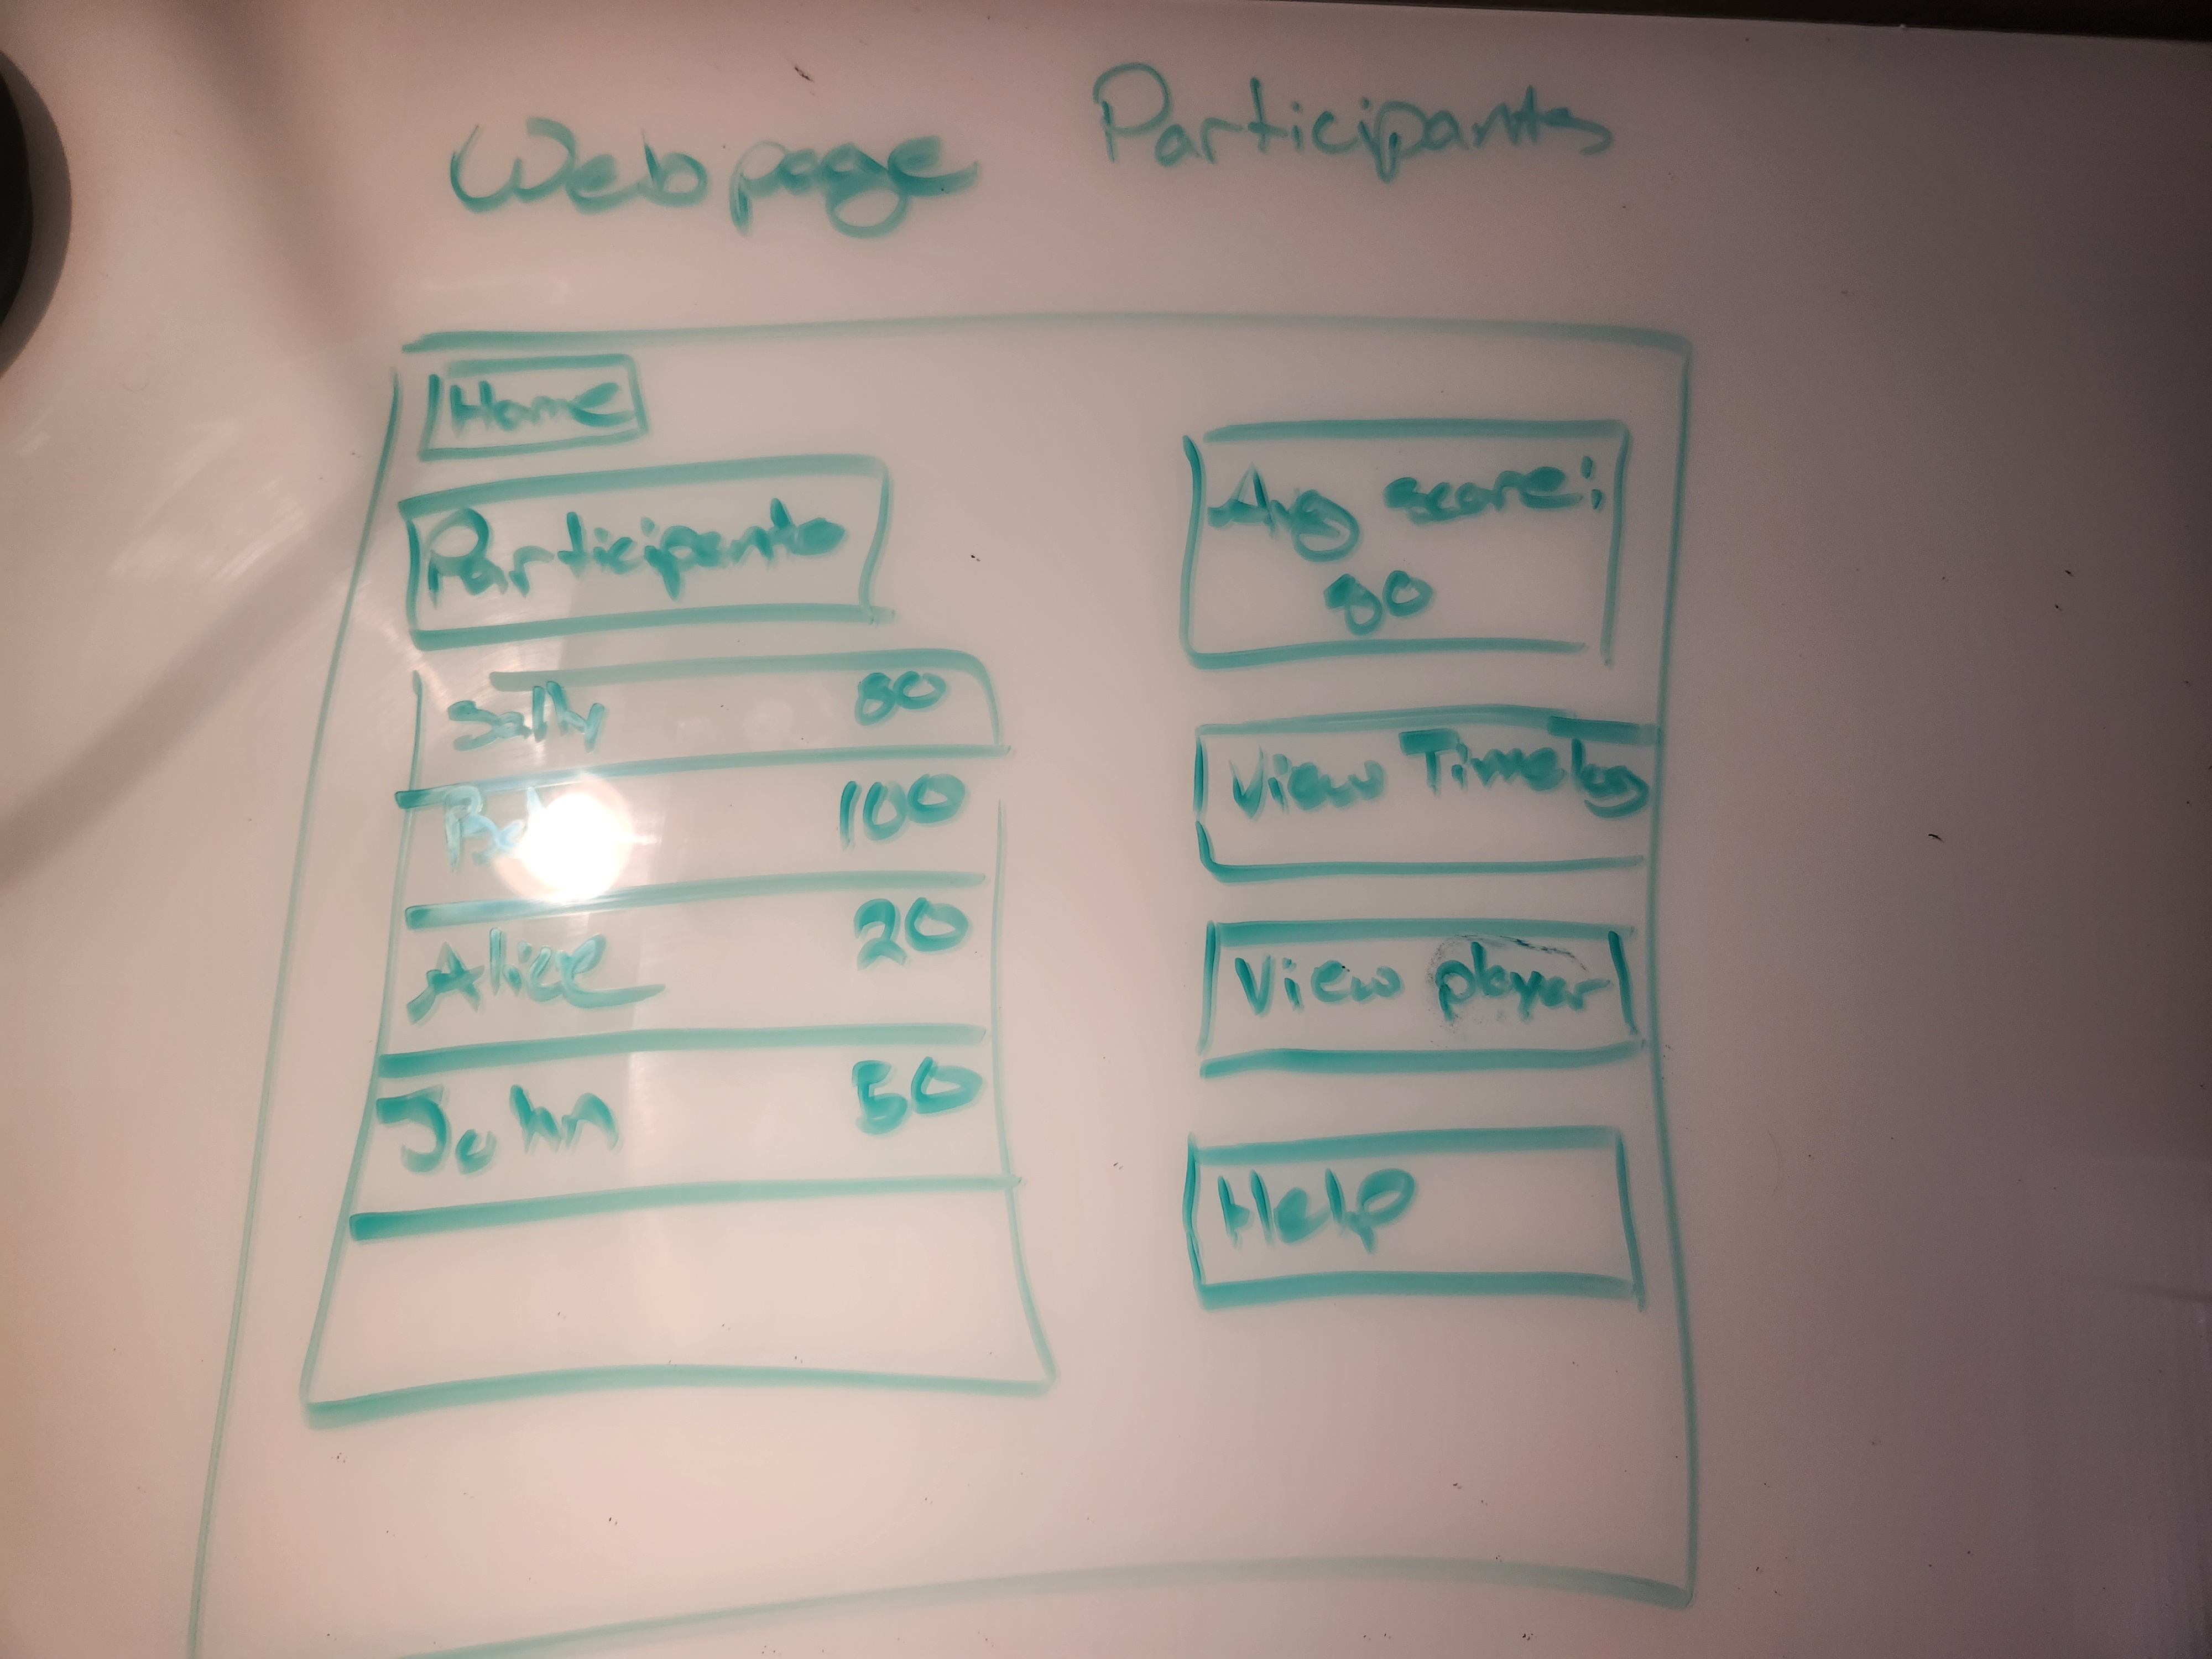 Webpage Participants
Home
Participants
Sally 80
100
Alice 20
John 50
Avg score:
80
View Timelog
View player
Help